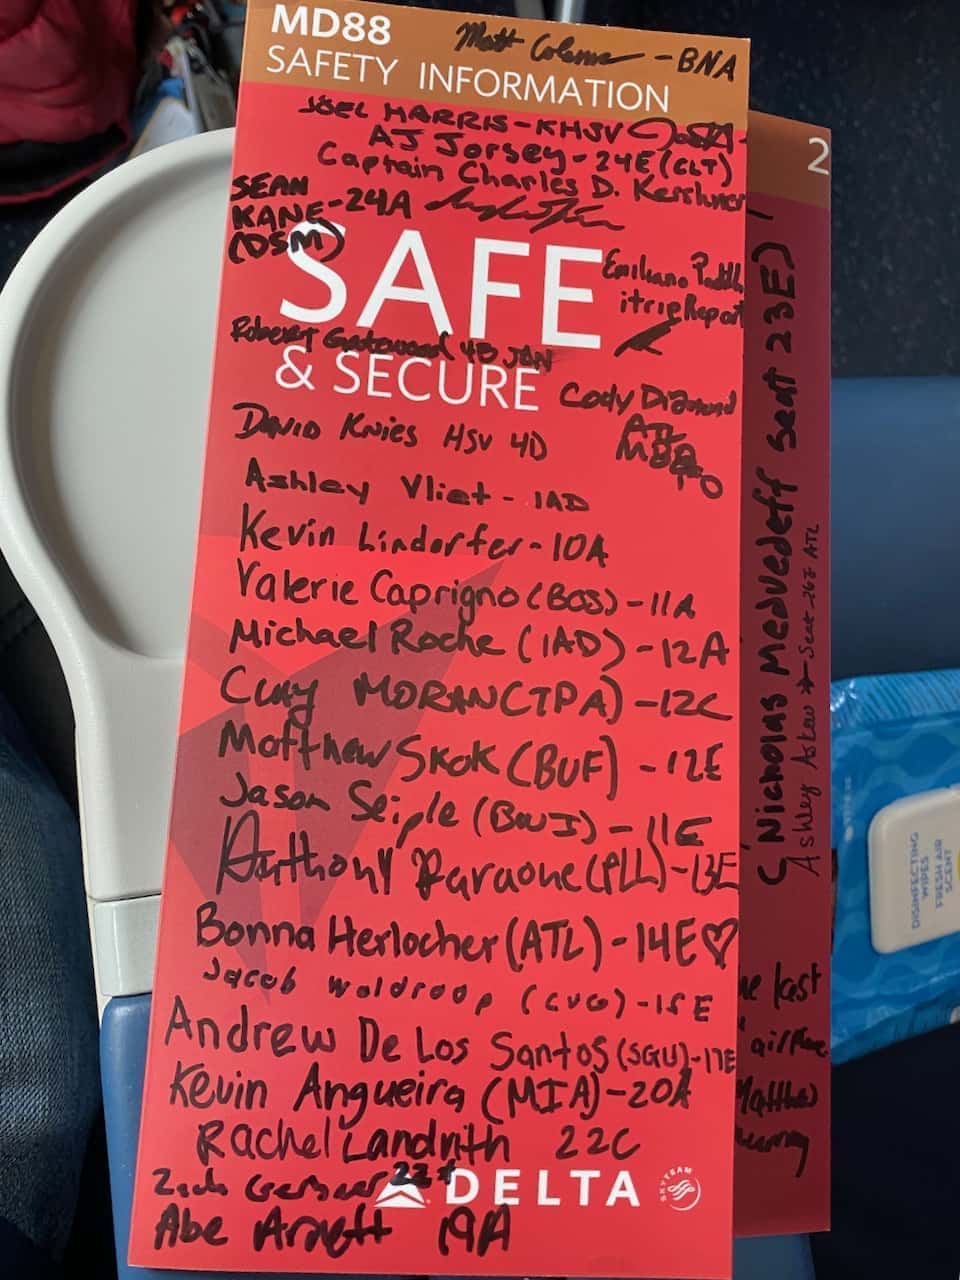 MD88
Matt Colema -BNA
SAFETY INFORMATION
JOEL HARRIS-KHSV
AJ Jorsey-24E (CLT)
Captain Charles D. Kershner
SEAN
KANE-24A
(DSM)
SAFE
Emiliano
itripReport
Robert Gatewood 4B JAN
& SECURE
Cody Diamond
ATL
David Knies HSV 4D
Ashley Vliet - IAD
Kevin Lindorfer-10A
Valerie Caprigno (BOS) -11A
Michael Roche (IAD) -12A
Clay MORAN (TPA) -12C
Matthew Skok (BUF) -12E
Jason Seiple (BWI) -11E
Anthony Paraone (PLL) -13E
Bonna Herlocher (ATL) -14E♡
Jacob Woldroop (CVG) -15E
Andrew De Los Santos (SGU)-17E
Kevin Angueira (MIA) -20A
Rachel Landrith 22C
Zach
DELTA
SKYTEAM
Abe Arnett 19A
2
Nicholas Medvedeff Seat 23E)
Ashley Askew Seat 26E ATL
last
airplane
DISINFECTING
WIPES
FRESH AIR
SCENT